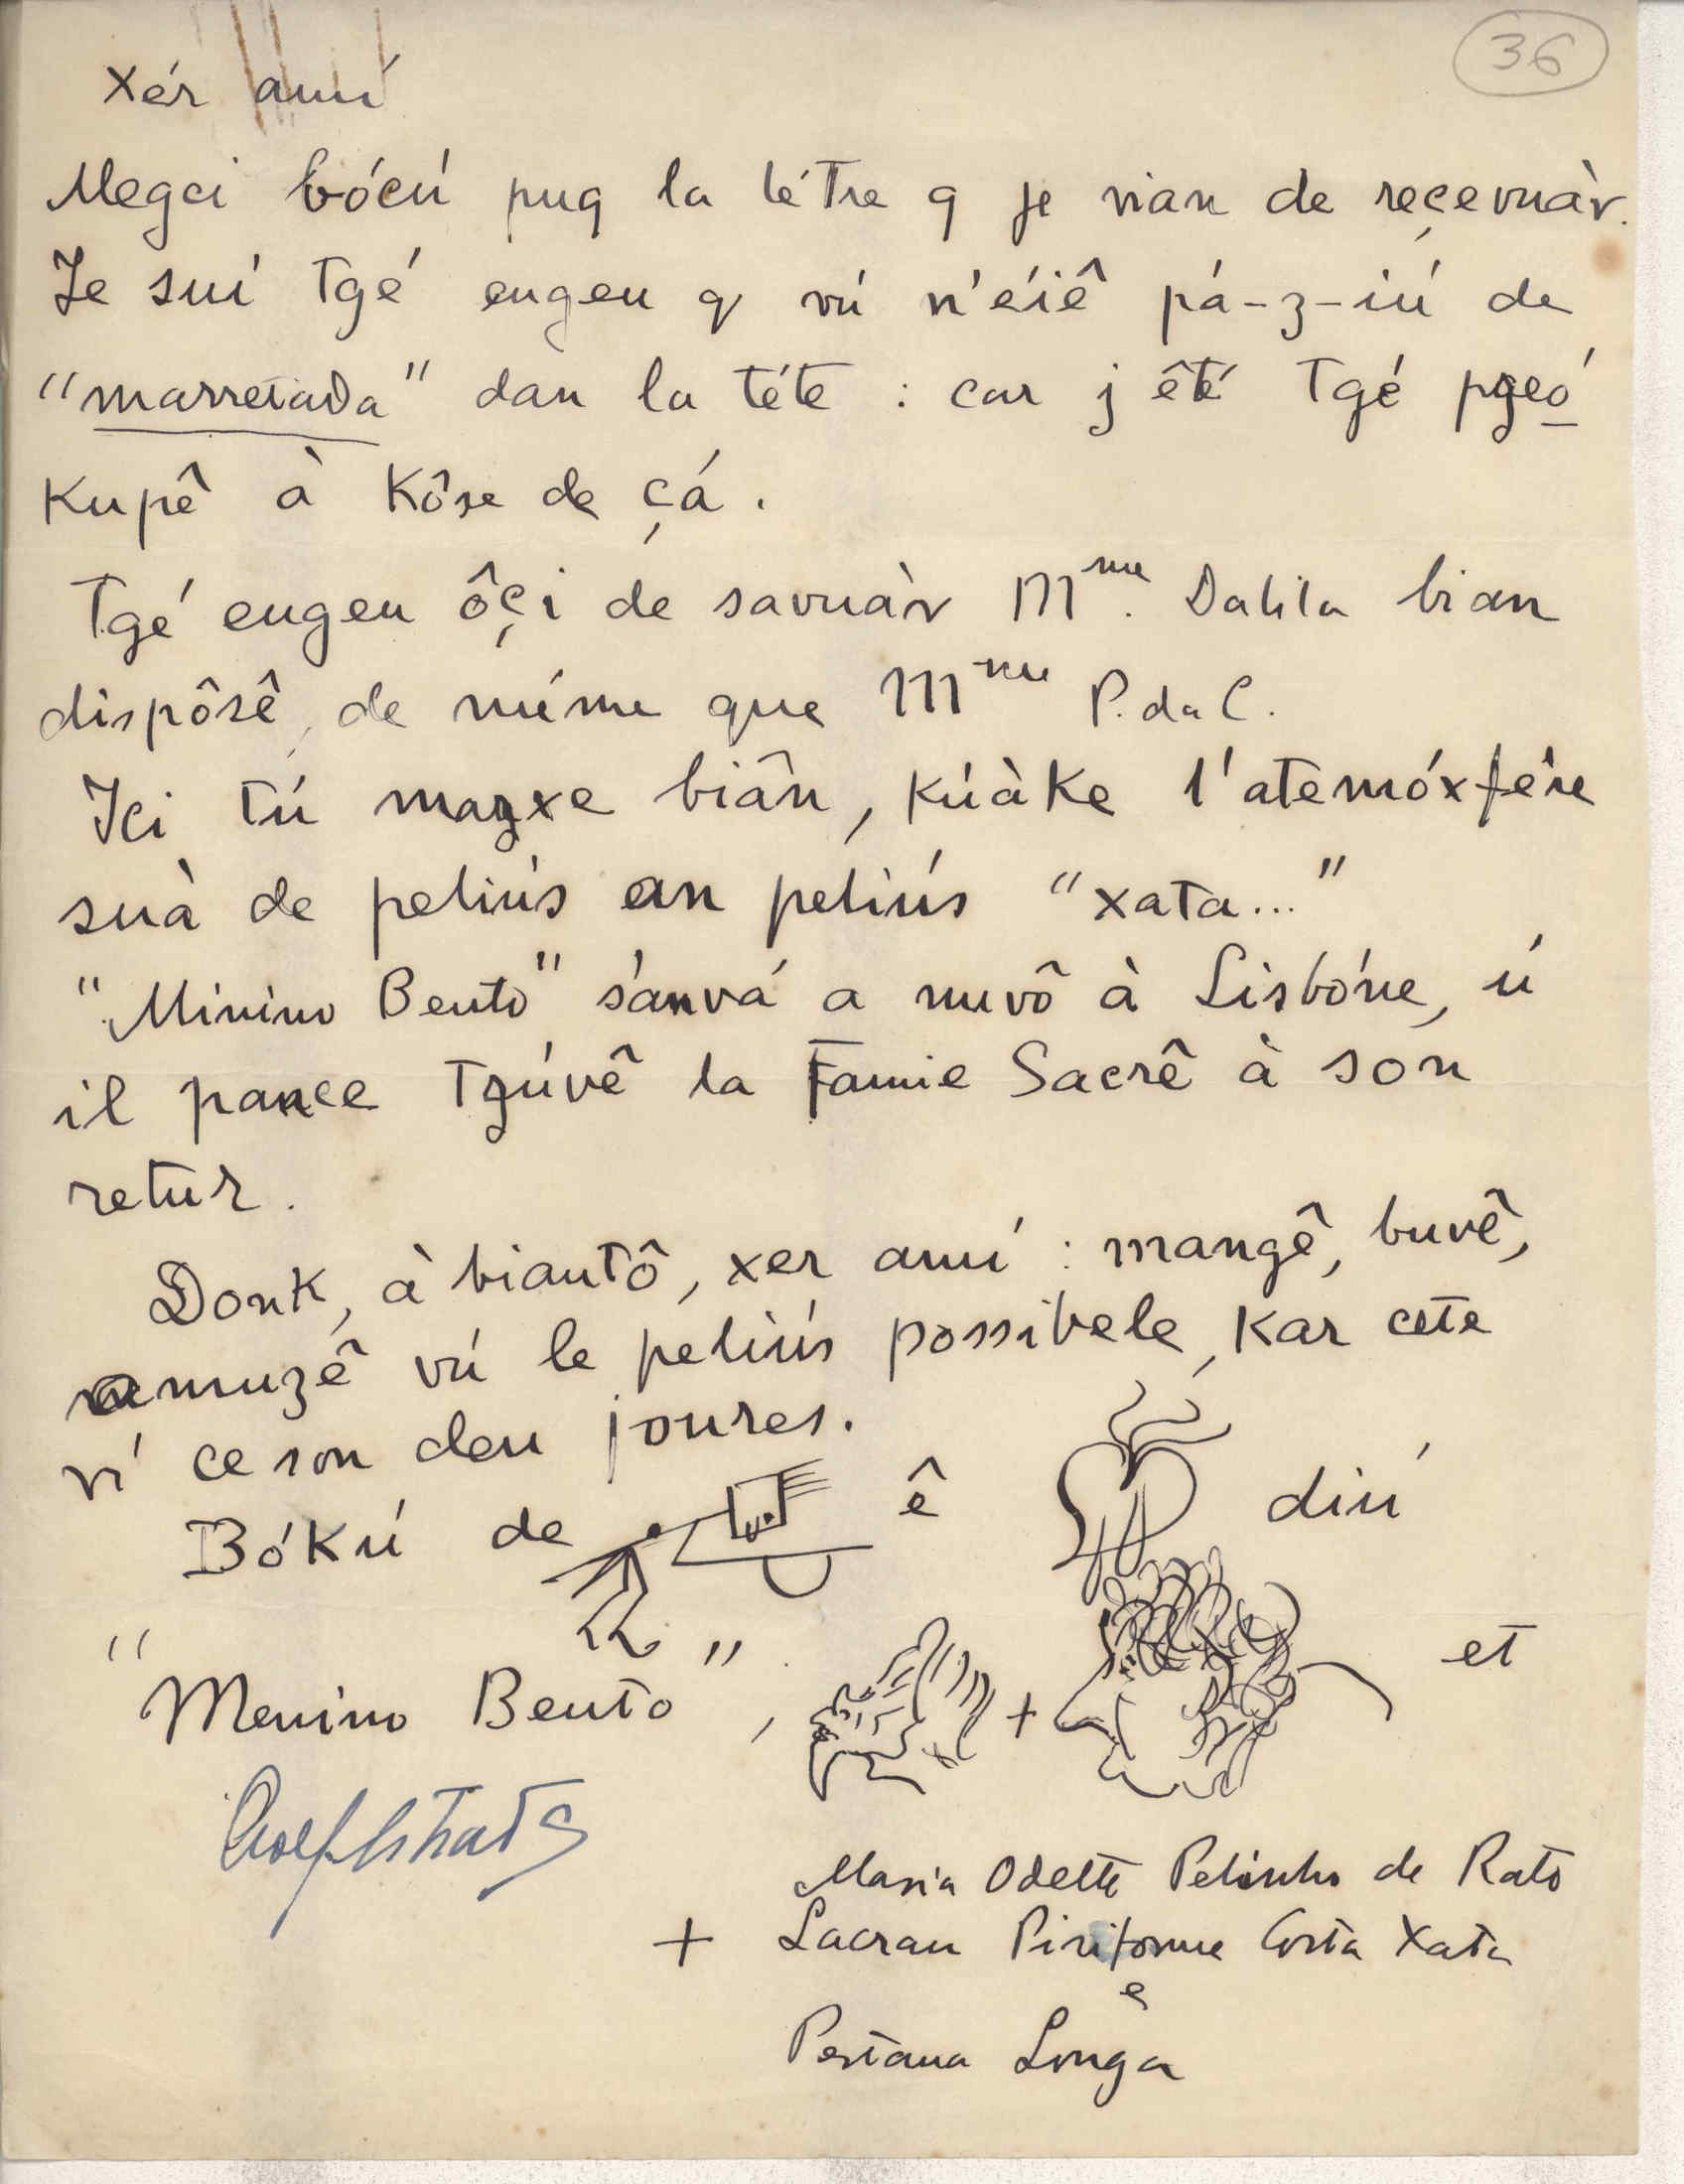 36
Xér amí
Megci bócú pug la létre q je vian de reçevuàr.
Je suí tgé eugeu q vú n'éiê pá-z-iú de
"marretada" dan la téte : car j êté tgé pgeó
kupê à kôse de çá.
Tgé eugeu ôçi de savuàr Mme. Dalila bian
dispôsê, de méme que Mme P. da C.
Ici tú magxe biân, kúàke l'atemóxfére
suà de peliús an peliús "xata..."
"Minino Bento" s'anvá a nuvô à Lisbóne, ú
il pance tgúvê la Famie Sacrê à son
retur.
Donk, à biantô, xer amí : mangê, buvê,
amuzê vú le peliús possibele, kar cete
ví ce son deu joures.
Bókú de ê diú
"Menino Bento",
+ et
Maria Odette Pelinho de Rato
+ Lacrau Piriforme Costa Xata
e
Pestana Longa